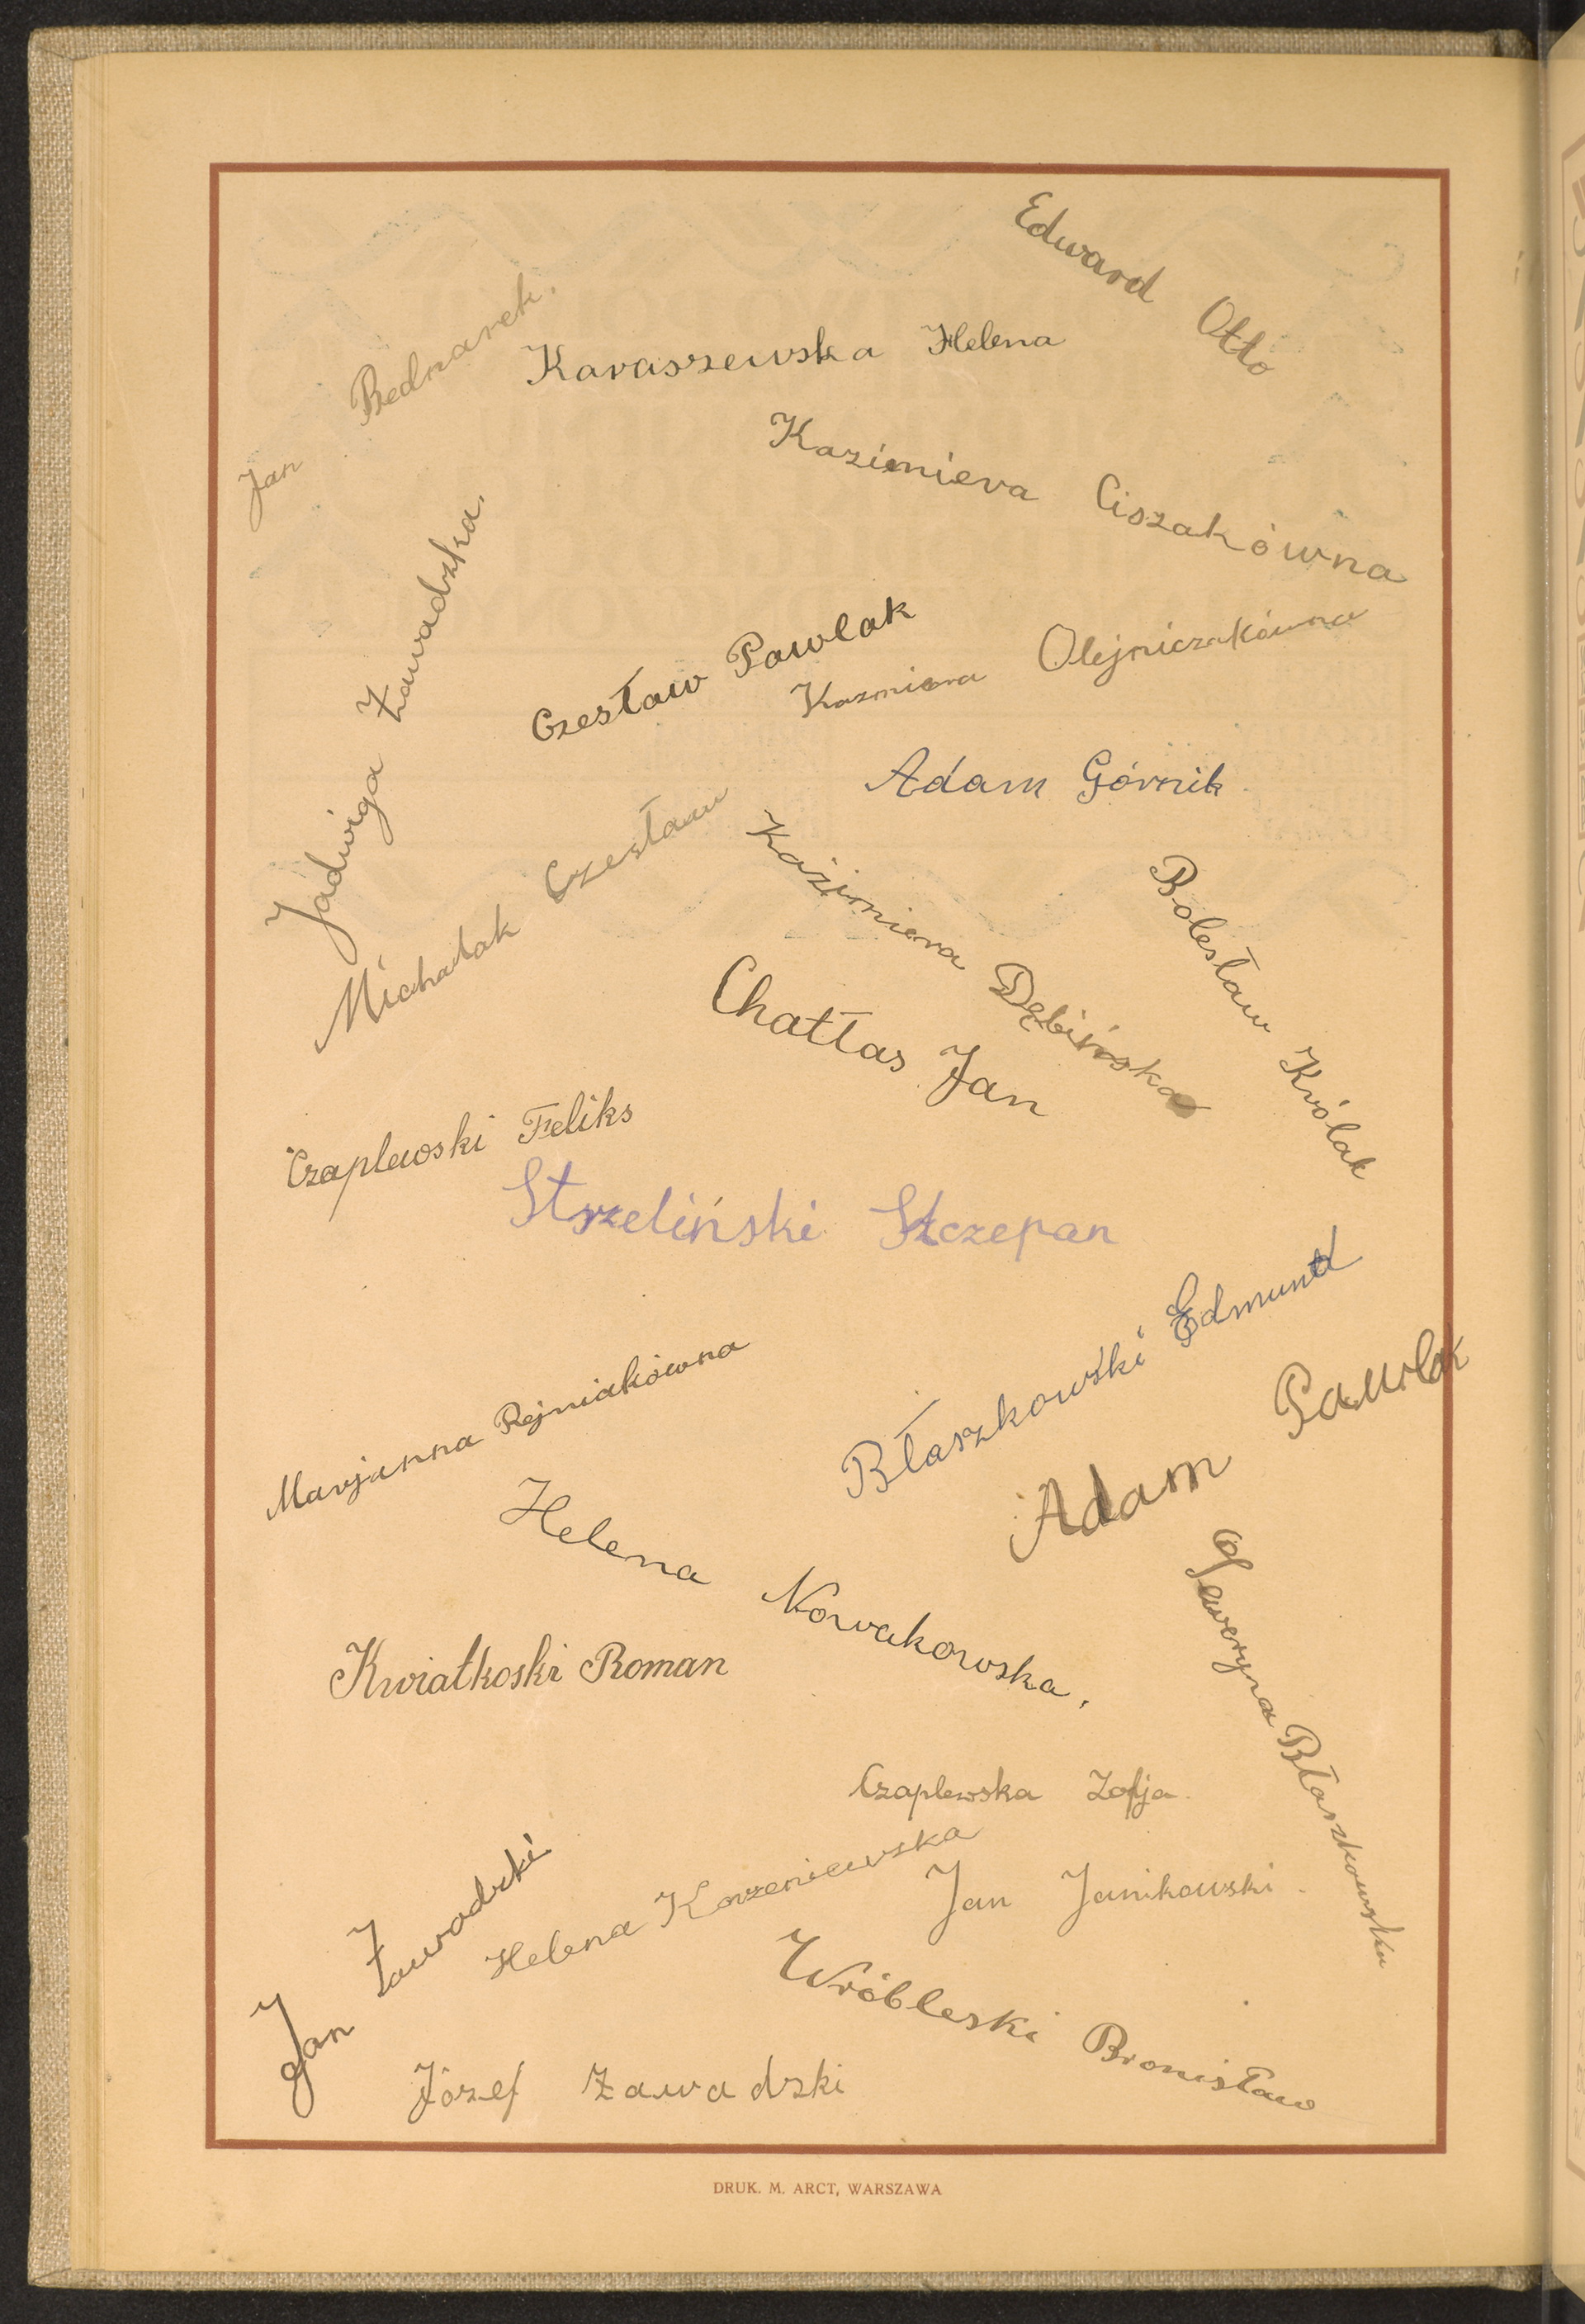 Edward Otto
Jan Bednarek.
Karaszewska Helena
Kazimiera Ciszakówna
Jadwiga Zawadzka.
Czesław Pawlak
Kazmiera Olejniczakówna
Adam Górnik
Michalak Czesław
Kazimiera Dębińska
Bolesław Królak
Chatłas Jan
Czaplewski Feliks
Strzeliński Szczepan
Błaszkowski Edmund
Marjanna Rejniakówna
Adam Pawlak
Helena Nowakowska.
Seweryna Błaszkowska
Kwiatkoski Roman
Czaplewska Zofja
Jan Zawadzki
Helena Korzeniewska
Jan Janikowski.
Wróbleski Bronisław
Józef Zawadzki
DRUK. M. ARCT, WARSZAWA